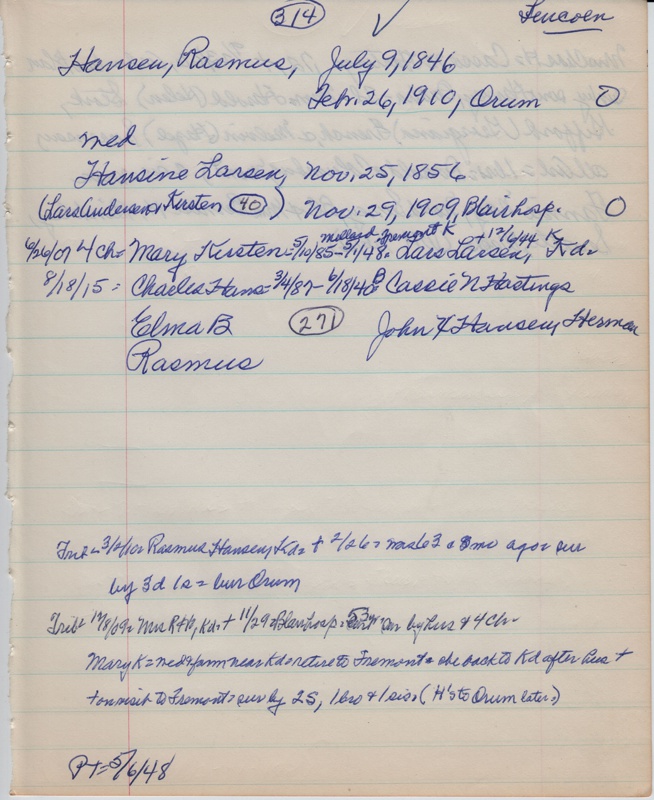 314
Hansen, Rasmus, July 9, 1846
Feb. 26, 1910, Orum O
med
Hansine Larsen, Nov. 25, 1856
(Lars Andersen & Kirsten 40) Nov. 29, 1909, Blair hosp. O
Millard, Fremont K + 12/6/44 K
6/26/07 4 Ch = Mary Kirsten = 5/10/85 - 5/1/48 = Lars Larsen, Kd =
8/18/15 = Charles Hans = 3/4/87 - 6/18/40 B Cassie N Hastings
Elma B 271 John H Hansen, Herman
Rasmus
Trib = 3/2/10 = Rasmus Hansen, Kd = + 2/26 = was 63 & 8 mo ago = sur
by 3d 1s = bur Orum
Trib = 12/8/09 = Mrs R H, Kd = + 11/29 = Blair hosp = 53 = sur by hus & 4 Ch =
Mary K = med = farm near Kd = retire to Fremont = she back to Kd after hus +
+ on visit to Fremont = sur by 2S, 1 bro & 1 sis = (H's to Orum later =)
PT = 5/6/48